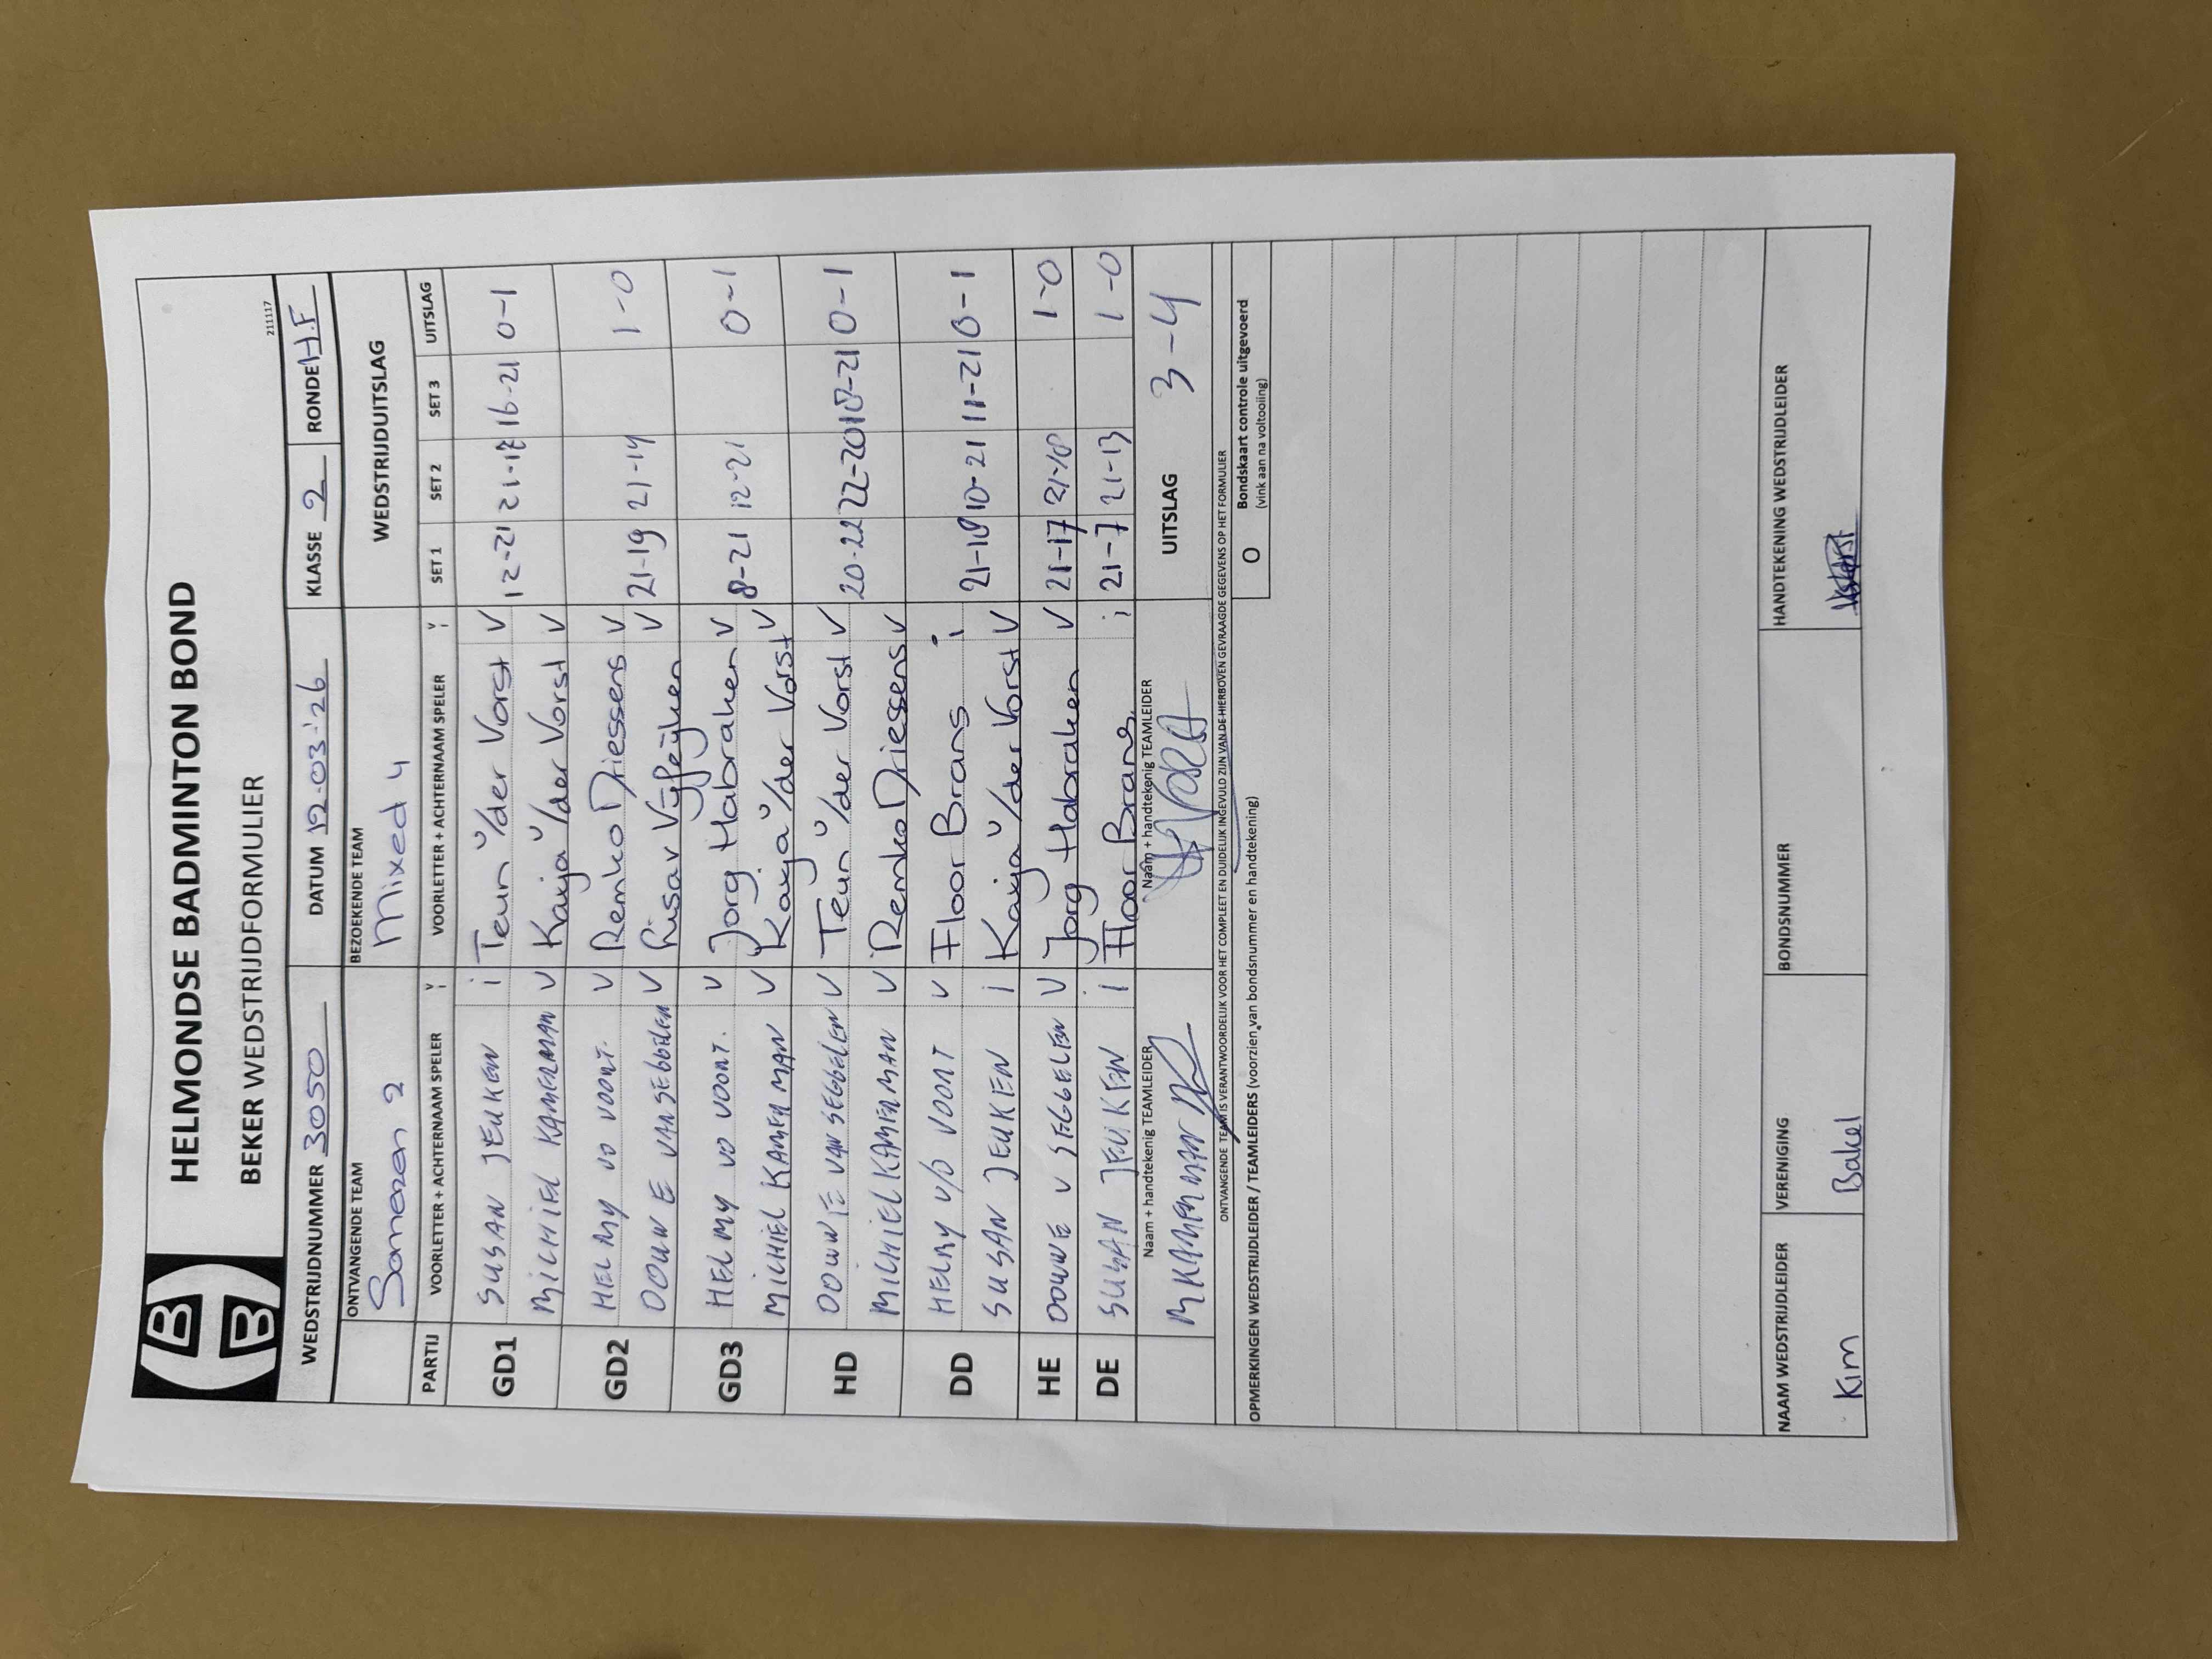 HELMONDSE BADMINTON BOND
BEKER WEDSTRIJDFORMULIER
211117
WEDSTRIJDNUMMER 3050 DATUM 12-03-'26 KLASSE 2 RONDE H.F
ONTVANGENDE TEAM BEZOEKENDE TEAM WEDSTRIJDUITSLAG
Someren 2 Mixed 4
PARTIJ VOORLETTER + ACHTERNAAM SPELER VOORLETTER + ACHTERNAAM SPELER SET 1 SET 2 SET 3 UITSLAG
GD1 SUSAN JEUKEN i Teun v/der Vorst V 12-21 21-18 16-21 0-1
MICHIEL KAMERMAN V Kayja v/der Vorst V
GD2 HELMY VD VOORT. V Remko Driessens V 21-19 21-14 1-0
DOUWE VAN SEGGELEN V Lisa v Vijfeijken V
GD3 HELMY VD VOORT. V Jorg Habraken V 8-21 12-21 0-1
MICHIEL KAMERMAN V Kayja v/der Vorst V
HD DOUWE VAN SEGGELEN V Teun v/der Vorst V 20-22 22-20 18-21 0-1
MICHIEL KAMERMAN V Remko Driessens V
DD HELMY V/D VOORT V Floor Brans i 21-18 10-21 11-21 0-1
SUSAN JEUKEN i Kayja v/der Vorst V
HE DOUWE V SEGGELEN V Jorg Habraken V 21-17 21-18 1-0
DE SUSAN JEUKEN i Floor Brans i 21-7 21-13 1-0
Naam + handtekenig TEAMLEIDER Naam + handtekenig TEAMLEIDER UITSLAG 3-4
M KAMERMAN
ONTVANGENDE TEAM IS VERANTWOORDELIJK VOOR HET COMPLEET EN DUIDELIJK INGEVULD ZIJN VAN DE HIERBOVEN GEVRAAGDE GEGEVENS OP HET FORMULIER
OPMERKINGEN WEDSTRIJDLEIDER / TEAMLEIDERS (voorzien van bondsnummer en handtekening) O Bondskaart controle uitgevoerd
(vink aan na voltooiing)
NAAM WEDSTRIJDLEIDER VERENIGING BONDSNUMMER HANDTEKENING WEDSTRIJDLEIDER
Kim Bakel